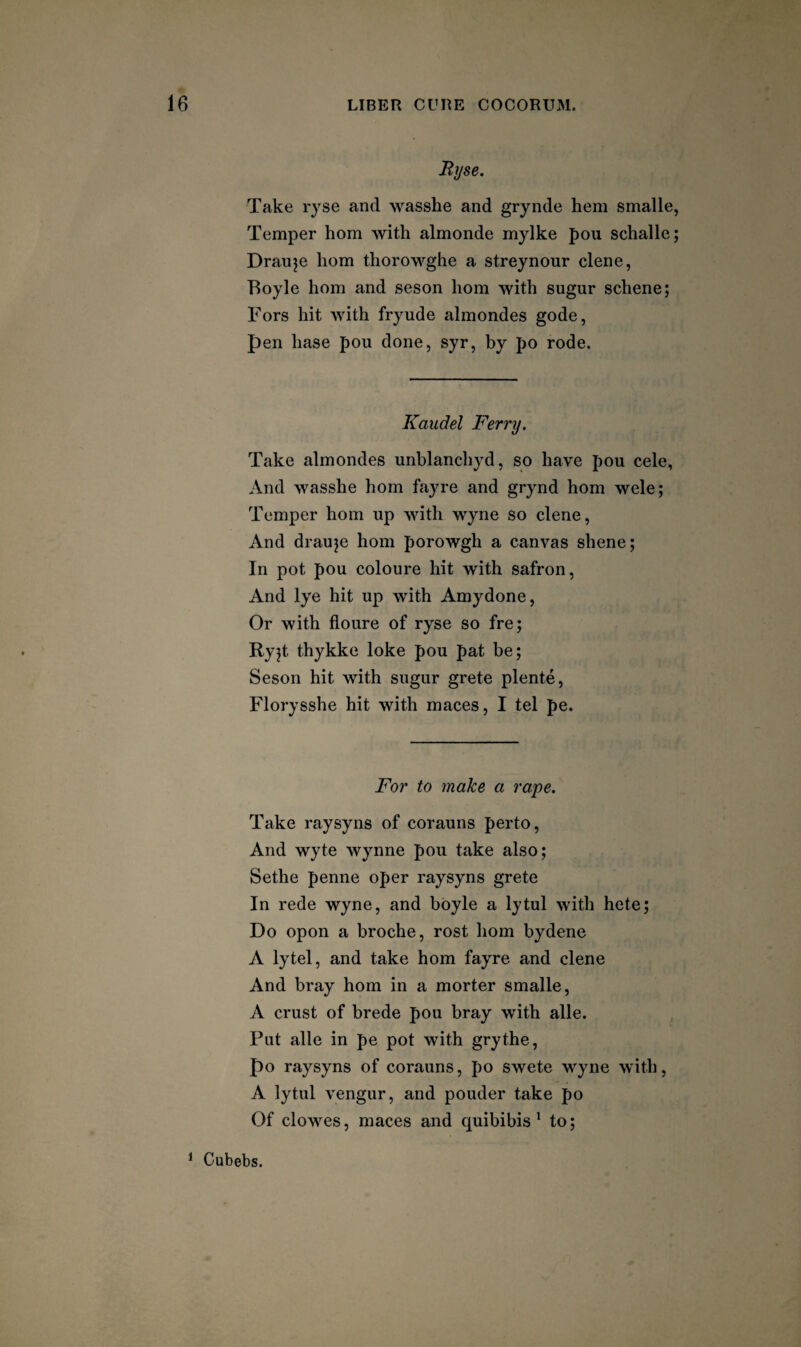 16 LIBER CURE COCORUM.
Ryse.
Take ryse and wasshe and grynde hem smalle,
Temper hom with almonde mylke þou schalle;
Drauȝe hom thorowghe a streynour clene,
Boyle hom and seson hom with sugur schene;
Fors hit with fryude almondes gode,
Þen hase þou done, syr, by þo rode.
Kaudel Ferry.
Take almondes unblanchyd, so have þou cele,
And wasshe hom fayre and grynd hom wele;
Temper hom up with wyne so clene,
And drauȝe hom þorowgh a canvas shene;
In pot þou coloure hit with safron,
And lye hit up with Amydone,
Or with floure of ryse so fre;
Ryȝt thykke loke þou þat be;
Seson hit with sugur grete plenté,
Florysshe hit with maces, I tel þe.
For to make a rape.
Take raysyns of corauns þerto,
And wyte wynne þou take also;
Sethe þenne oþer raysyns grete
In rede wyne, and boyle a lytul with hete;
Do opon a broche, rost hom bydene
A lytel, and take hom fayre and clene
And bray hom in a morter smalle,
A crust of brede þou bray with alle.
Put alle in þe pot with grythe,
Þo raysyns of corauns, þo swete wyne with,
A lytul vengur, and pouder take þo
Of clowes, maces and quibibis ¹ to;
¹ Cubebs.